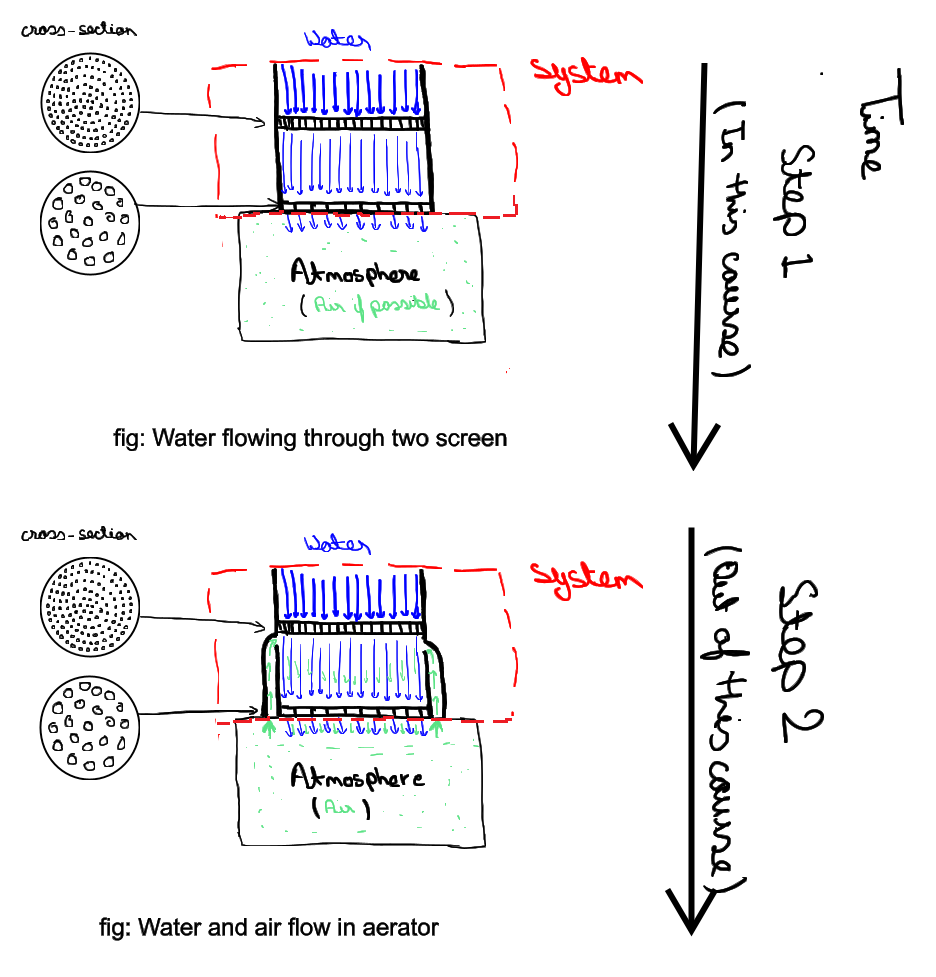 cross-section
Water
system
Atmosphere
(Air if possible)
fig: Water flowing through two screen
Time
Step 1
(In this course)
cross-section
Water
system
Atmosphere
(Air)
fig: Water and air flow in aerator
Step 2
(Out of this course)